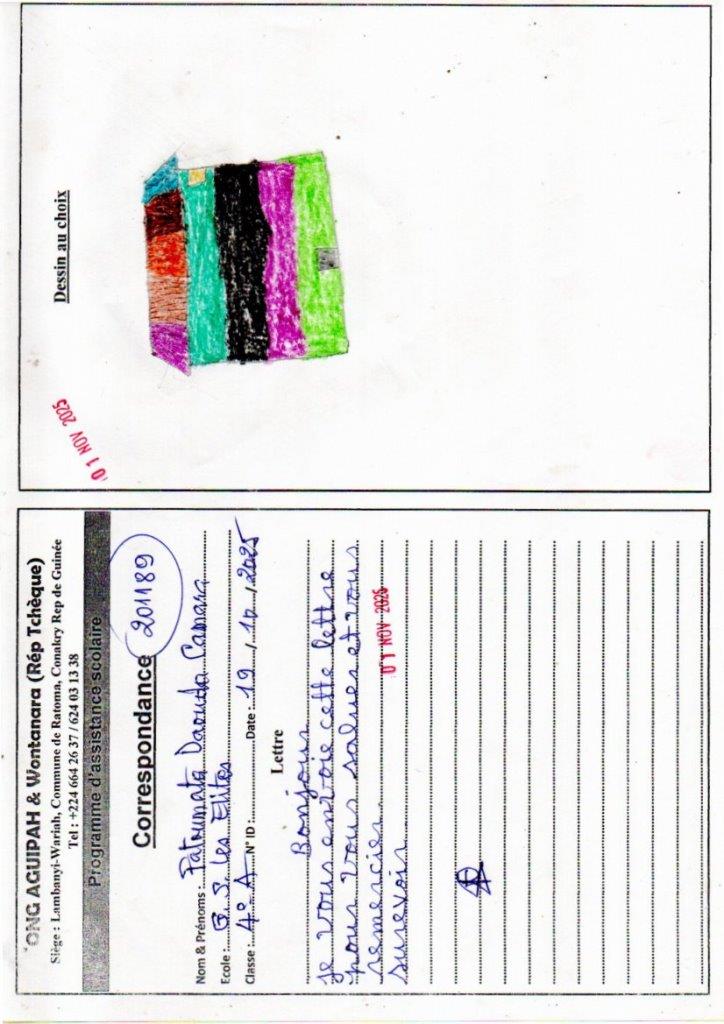 ONG AGUIPAH & Wontanara (Rép Tchèque)
Siège : Lambanyi-Wariah, Commune de Ratoma, Conakry Rep de Guinée
Tel : +224 664 26 37 / 624 03 13 38
Programme d'assistance scolaire
Correspondance
201189
Nom & Prénoms : Fatoumata Daouda Camara
Ecole : G.S. Les Elites
Classe : 4e A N° ID : Date : 19 / 10 / 2025
Lettre
Bonjour
Je vous envoie cette lettre
pour vous saluer et vous
remercier
01 NOV 2025
aurevoir
01 NOV 2025
Dessin au choix